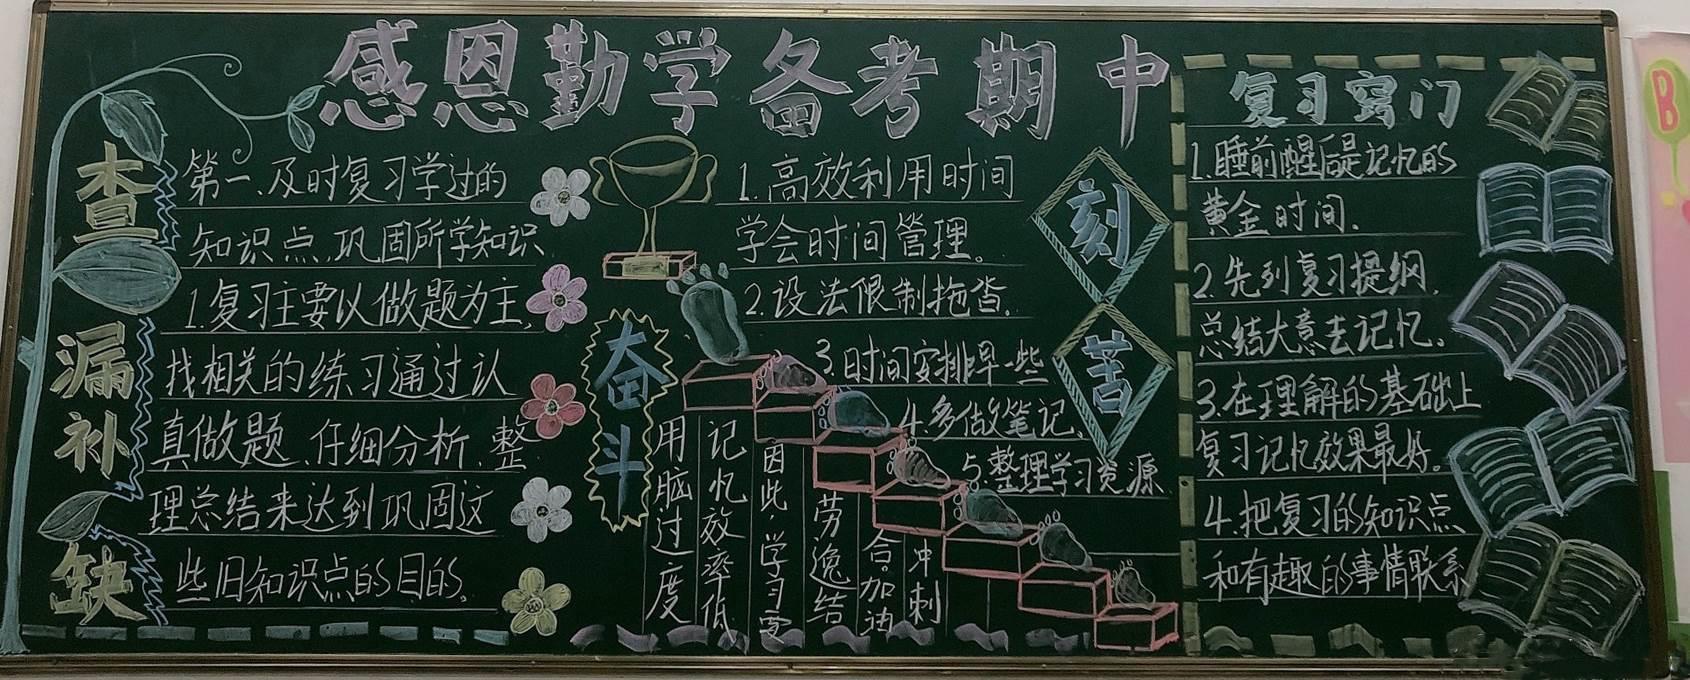 感恩勤学备考期中
查漏补缺
第一、及时复习学过的
知识点,巩固所学知识
1.复习主要以做题为主,
找相关的练习通过认
真做题、仔细分析、整
理总结来达到巩固这
些旧知识点的目的。
奋斗
1.高效利用时间
学会时间管理。
2.设法限制拖沓.
3.时间安排早一些
4.多做笔记、
5.整理学习资源
刻苦
用脑过度
记忆效率低
因此,学习要
劳逸结
合。加油
冲刺
复习窍门
1.睡前醒后是记忆的
黄金时间.
2.先列复习提纲.
总结大意去记忆。
3.在理解的基础上
复习记忆效果最好。
4.把复习的知识点
和有趣的事情联系
B